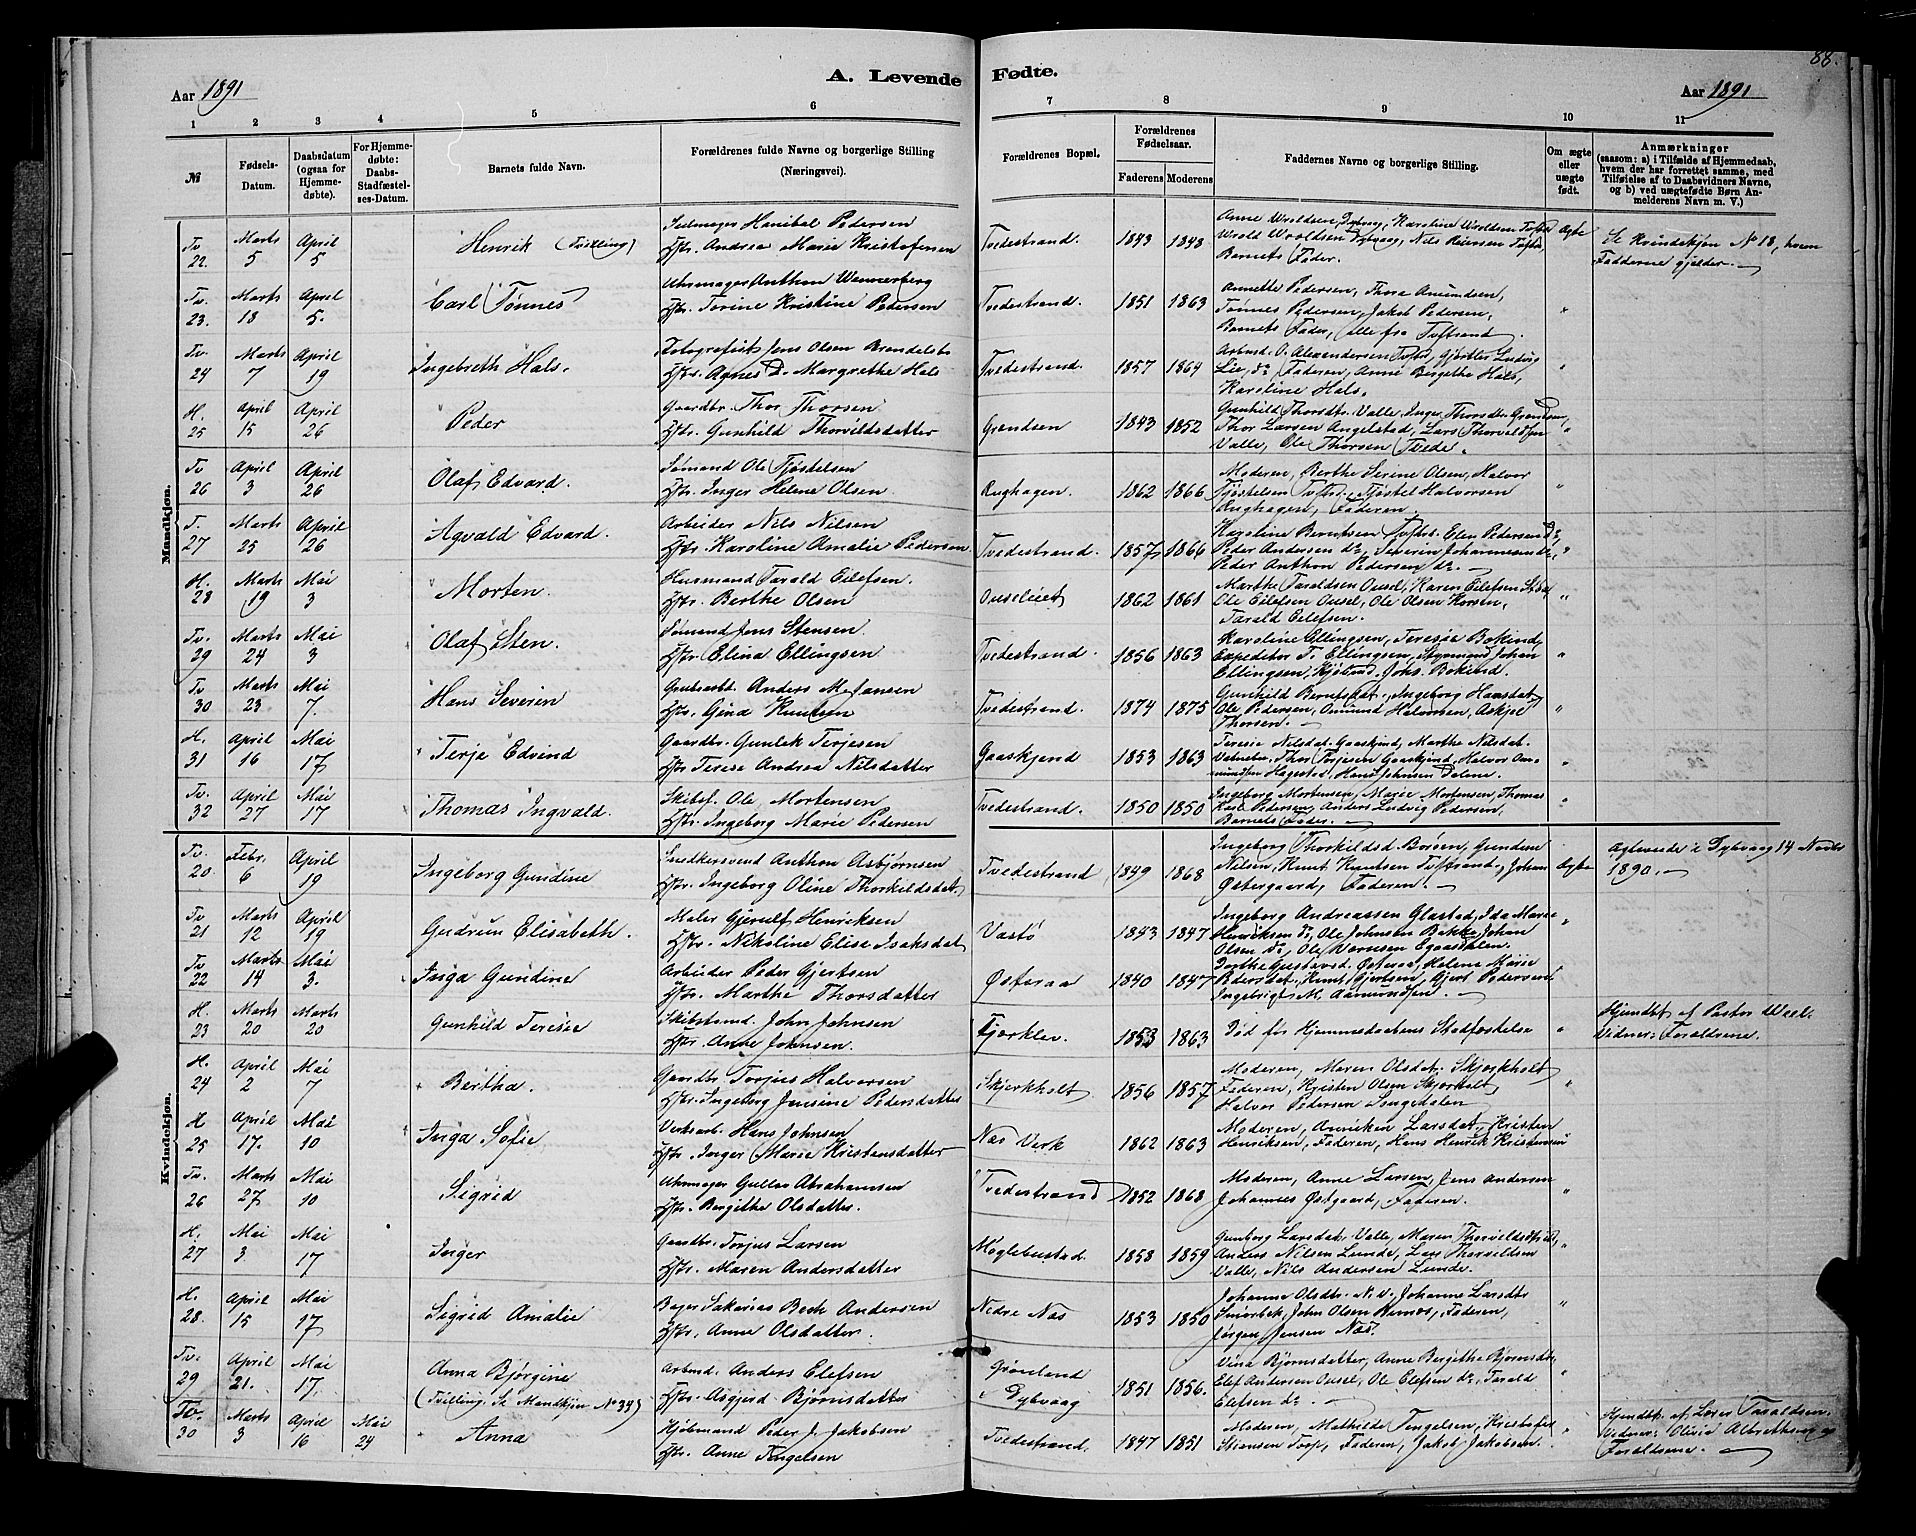 88.
A. Levende Fødte.
Aar 1891
Aar 1891
1 2 3 4 5 6 7 8 9 10 11
№
Fødsels-Datum.
Daabsdatum (ogsaa for Hjemmedøbte).
For Hjemmedøbte: Daabs-Stadfæstelses-Datum.
Barnets fulde Navn.
Forældrenes fulde Navne og borgerlige Stilling (Næringsvei).
Forældrenes Bopæl.
Forældrenes Fødselsaar.
Faderens Moderens
Faddernes Navne og borgerlige Stilling.
Om ægte eller uægte født.
Anmærkninger (saasom: a) i Tilfælde af Hjemmedaab, hvem der har forrettet samme, med Tilføielse af to Daabsvidners Navne, og b) ved uægtefødte Børn Anmelderens Navn m. V.)
Mandkjøn.
Tv 22. Marts 5 April 5 Henrik (Tvilling) Seilmager Hanibal Pedersen
Hstr. Andrea Marie Kristofersen Tvedestrand. 1843 1843 Anne Wroldsen, Dybvaag, Karoline Wroldsen
Wrold Wroldsen Dybvaag, Nils
Barnets Fader. Ægte Se Kvindekjøn No 18, hvem
Fadderne gjelder.
Tv. 23. Marts 18 April 5. Carl Tønnes Uhrmager Anthon Wennerberg
Hstr. Torine Kristine Pedersen Tvedestrand. 1851 1863 Annette Pedersen, Thora Amundsen,
Tønnes Pedersen, Jakob Pedersen,
Barnets Fader, alle fra Tvstrand. "
Tv. 24 Marts 7 April 19 Ingebreth Hals. Fotografist Jens Olsen
Hstr. Agnes D. Margrethe Hals Tvedestrand. 1857 1864 Arbmd. O. Alexandersen Tvstr, Gjørtler Ludvig
Lie, do, Faderen, Anne Bergithe Hals,
Karoline Hals. "
H. 25 April 15 April 26 Peder Gaardbr. Thor Thorsen
Hstr. Gunhild Thorvildsdatter Grendsen 1843 1852 Gunhild Thorsdtr. Valle, Inger Thorsdtr. Grendsen,
Thor Larsen Angelstad, Lars Thorvaldsen
Valle, Ole Thorsen Tvede. "
Tv 26 April 3 April 26 Olaf Edvard. Sømand Ole Tjøstelsen
Hstr. Inger Helene Olsen Rughagen. 1862 1866 Moderen, Berthe Serine Olsen, Halvor
Tjøstelsen Tvstr., Tjøstel Halvorsen
Rughagen, Faderen. "
T. 27 Marts 25 April 26 Agvald Edvard. Arbeider Nils Nilsen
Hstr. Karoline Amalie Pedersen Tvedestrand. 1857 1866 Karoline Berntsen Tvstr. Elen Pedersen Do,
Peder Andersen do, Severin Johannesen do,
Peder Anthon Pedersen do. "
H. 28 Marts 19 Mai 3 Morten. Husmand Tarald Eilefsen.
Hstr. Berthe Olsen Ouseleiet 1862 1861 Marthe Taraldsen Ousel, Karen Eilefsen
Ole Eilefsen Ousel, Ole Olsen
Tarald Eilefsen. "
Tv. 29 Marts 24 Mai 3 Olaf Sten. Sømand Jens Stensen.
Hstr. Elina Ellingsen Tvedestrand. 1856 1863 Karoline Ellingsen, Teresia Bokind,
Expeditør T. Ellingsen, Styrmand Johan
Ellingsen, Johs. Bokind. "
Tv 30 Marts 23 Mai 7. Hans Severin Grubearb. Anders M. Jansen
Hstr. Gina Knutsen Tvedestrand. 1874 1875 Gunhild Berntsdat., Ingeborg Hansdat,
Ole Pedersen, Amund Halvorsen,
Thorsen. "
H. 31 April 16 Mai 17 Terje Edvind Gaardbr. Gunlek Terjesen
Hstr Terese Andrea Nilsdatter Gaaskjend 1853 1863 Teresie Nilsdat. Gaaskjend, Marthe Nilsdat.
Thor Terjesen Gaaskjend, Halvor
Hagestad, Hans Johnsen Dalene. "
Tv. 32 April 27 Mai 17 Thomas Ingvald. Skibsf. Ole Mortensen
Hstr. Ingeborg Marie Pedersen Tvedestrand. 1850 1850 Ingeborg Mortensen, Marie Mortensen, Thomas
Karl Pedersen, Anders Ludvig Pedersen,
Barnets Fader. "
Kvindekjøn.
Tv. 20 Febr. 6 April 19 Ingeborg Gundine Snedkersvend Anthon Asbjørnsen
Hstr. Ingeborg Oline Thorkildsdat. Tvedestrand 1849 1868 Ingeborg Thorkildsd Gundem
Nilsen, Knut Knutsen Tvstrand, Johan
Østergaard, Faderen. Ægte Ægteviede i Dybvaag 14 Novbr
1890.
Tv 21 Marts 12 April 19 Gudrun Elisabeth. Maler Gjerulf Henriksen
Hstr. Nikoline Elise Isaksdat Vastø 1843 1847 Ingeborg Andreassen Glastad, Ida Marie
Henriksen do, Ole Johnsen Bakke, Johan
Olsen do, Ole "
Tv 22 Marts 14 Mai 3. Inga Gundine Arbeider Peder Gjertsen
Hstr. Marthe Thorsdatter Østeraa 1840 1847 Dorthe Gustavsd. Østeraa, Helene Marie
Pedersdat., Knut Gjertsen, Gjert Pedersen,
Ingebrigt M. Aamundsen. "
H. 23 Marts 20 Marts 20 Gunhild Terese Skibstømd. John Johnsen
Hstr. Anne Johnsen. Fjærklev. 1853 1863 Død før Hjemmedaabens Stadfæstelse " Hjemdbt af Pastor
Vidner: Forældrene.
H. 24 April 2 Mai 7 Bertha. Gaardbr Torjus Halvorsen
Hstr. Ingeborg Jensine Pedersdatter Skjerkholt 1856 1857 Moderen, Maren Olsdat. Skjerkholt,
Faderen, Kristen Olsen Skjerkholt,
Halvor Pedersen Songedalen "
H 25 April 17. Mai 10 Inga Sofie Verksarb. Hans Johnsen
Hstr. Inger Marie Kristensdatter Næs Verk 1862 1863 Moderen, Anniken Larsdat, Kristen
Henriksen, Faderen, Hans Henrik Kristensen "
Tv. 26 Marts 27 Mai 10 Sigrid Uhrmager Gullas Abrahamsen
Hstr. Bergithe Olsdatter. Tvedestrand 1852 1868 Moderen, Anne Larsen, Jens Andersen
Johannes Østgaard, Faderen. "
H. 27 Mai 3 Mai 17 Inger Gaardbr. Torjus Larsen
Hstr. Maren Andersdatter Møglebustad 1858 1859 Gunborg Larsdat. Valle, Maren
Anders Nilsen Lunde, Lars Thorvildsen
Valle, Nils Andersen Lunde. "
H. 28. April 15 Mai 17 Sigrid Amalie Bager Sakarias Bech Andersen
Hstr. Anne Olsdatter. Nedre Næs 1853 1850 Johanne Olsdtr. N. V. Johanne Larsdtr
Smørbek, John Olsen Ramos, Faderen,
Jørgen Jensen Næs. "
Tv. 29 April 21. Mai 17. Anna Bjørgine
(Tvilling. Se Mandkjøn No 33) Arbmd. Anders Elefsen
Hstr. Asgjerd Bjørnsdatter Grønland
i Dybvaag 1851 1856. Vina Bjørnsdatter, Anne Bergithe Bjørnsdtr
Elef Andersen Ousel, Ole Elefsen do, Tarald
Elefsen do. "
Tv. 30 Marts 3 April 16 Mai 24 Anna Kjøbmand Peder J. Jakobsen
Hstr. Anne Tengelsen Tvedestrand. 1847 1851 Moderen, Mathilde Tengelsen, Kristofer
Stiansen Torp, Faderen, Jakob Jakobsen. " Hjemdbt. af Lærer Taraldsen.
Vidner: Olivia Albrethsen og
Forældrene.